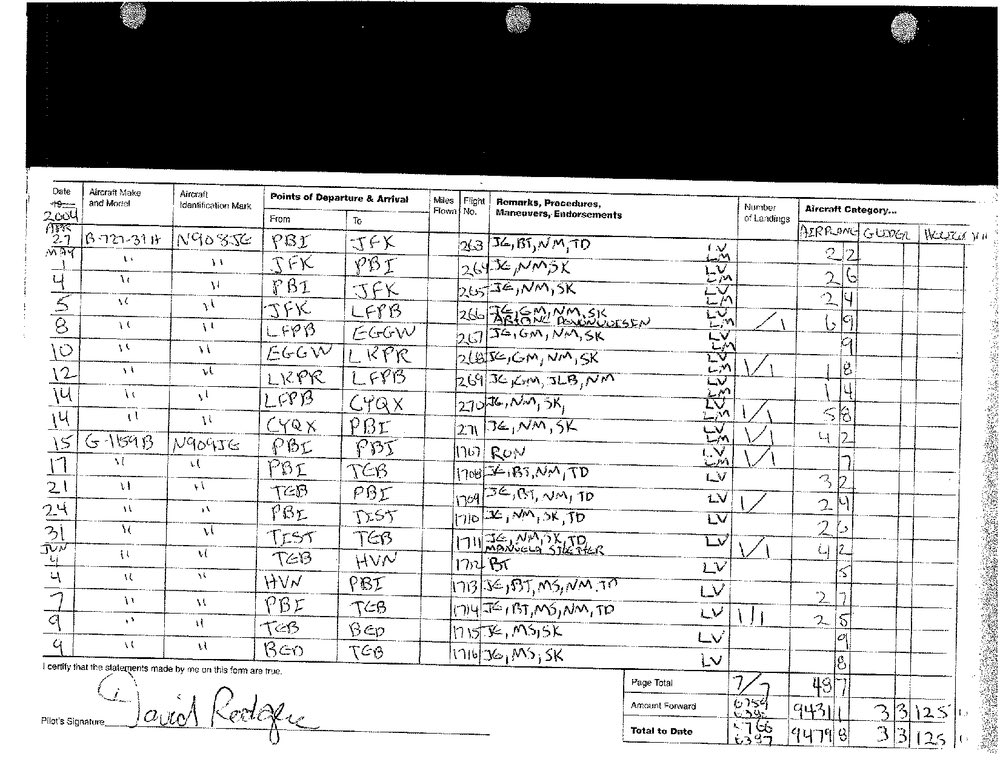 Date Aircraft Make and Model Aircraft Identification Mark Points of Departure & Arrival Miles Flown Flight No. Remarks, Procedures, Maneuvers, Endorsements Number of Landings Aircraft Category...
19 2004 From To AIRPLANE GLIDER
APR 27 B-727-31H N908JE PBI JFK 263 JE, BT, NM, TD 2 2
MAY 1 " " JFK PBI 264 JE, NM, SK 2 6
4 " " PBI JFK 265 JE, NM, SK 2 4
5 " " JFK LFPB 266 JE, GM, NM, SK / 1 6 9
8 " " LFPB EGGW 267 JE, GM, NM, SK 9
10 " " EGGW LKPR 268 JE, GM, NM, SK 1/1 1 8
12 " " LKPR LFPB 269 JE, GM, JLB, NM 1 4
14 " " LFPB CYQX 270 JE, NM, SK, 1/1 5 8
14 " " CYQX PBI 271 JE, NM, SK 1/1 4 2
15 G-1159B N909JE PBI PBI 1707 RON 1/1 7
17 " " PBI TEB 1708 JE, BT, NM, TD LV 3 2
21 " " TEB PBI 1709 JE, BT, NM, TD LV 1/ 2 4
24 " " PBI TIST 1710 JE, NM, SK, TD LV 2 6
31 " " TIST TEB 1711 JE, NM, SK, TD LV 1/1 4 2
JUN 4 " " TEB HVN 1712 BT LV 5
4 " " HVN PBI 1713 JE, BT, MS, NM, TD LV 2 7
7 " " PBI TEB 1714 JE, BT, MS, NM, TD LV 1/1 2 5
9 " " TEB BED 1715 JE, MS, SK LV 9
9 " " BED TEB 1716 JE, MS, SK LV 8
I certify that the statements made by me on this form are true.
Page Total 7/7 48 7
Amount Forward 6759 9431 1 3 3 125
Pilot's Signature David Rodgers
Total to Date 6766 6397 9479 8 3 3 125